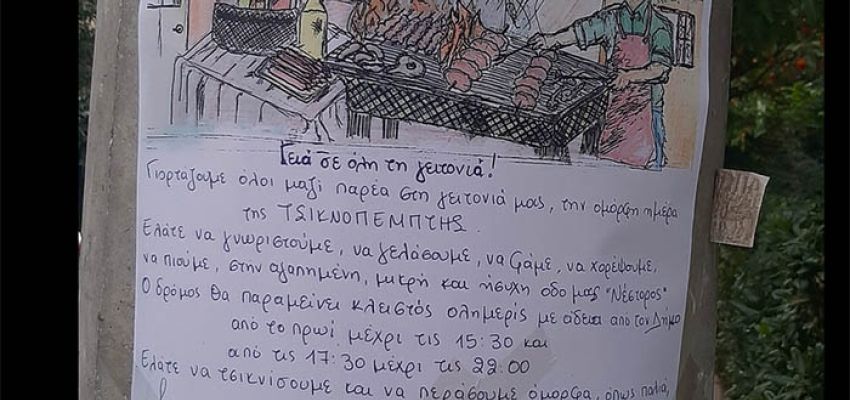 Γειά σε όλη τη γειτονιά!
Γιορτάζουμε όλοι μαζί παρέα στη γειτονιά μας, την όμορφη ημέρα
της ΤΣΙΚΝΟΠΕΜΠΤΗΣ.
Ελάτε να γνωριστούμε, να γελάσουμε, να φάμε, να χορέψουμε,
να πιούμε, στην αγαπημένη, μικρή και ήσυχη οδο μας "Νέστορος"
Ο δρόμος θα παραμείνει κλειστός ολημερίς με άδεια από τον Δήμο
από το πρωί μέχρι τις 15:30 και
από τις 17:30 μέχρι τις 22:00
Ελάτε να τσικνίσουμε και να περάσουμε όμορφα, όπως παλιά,